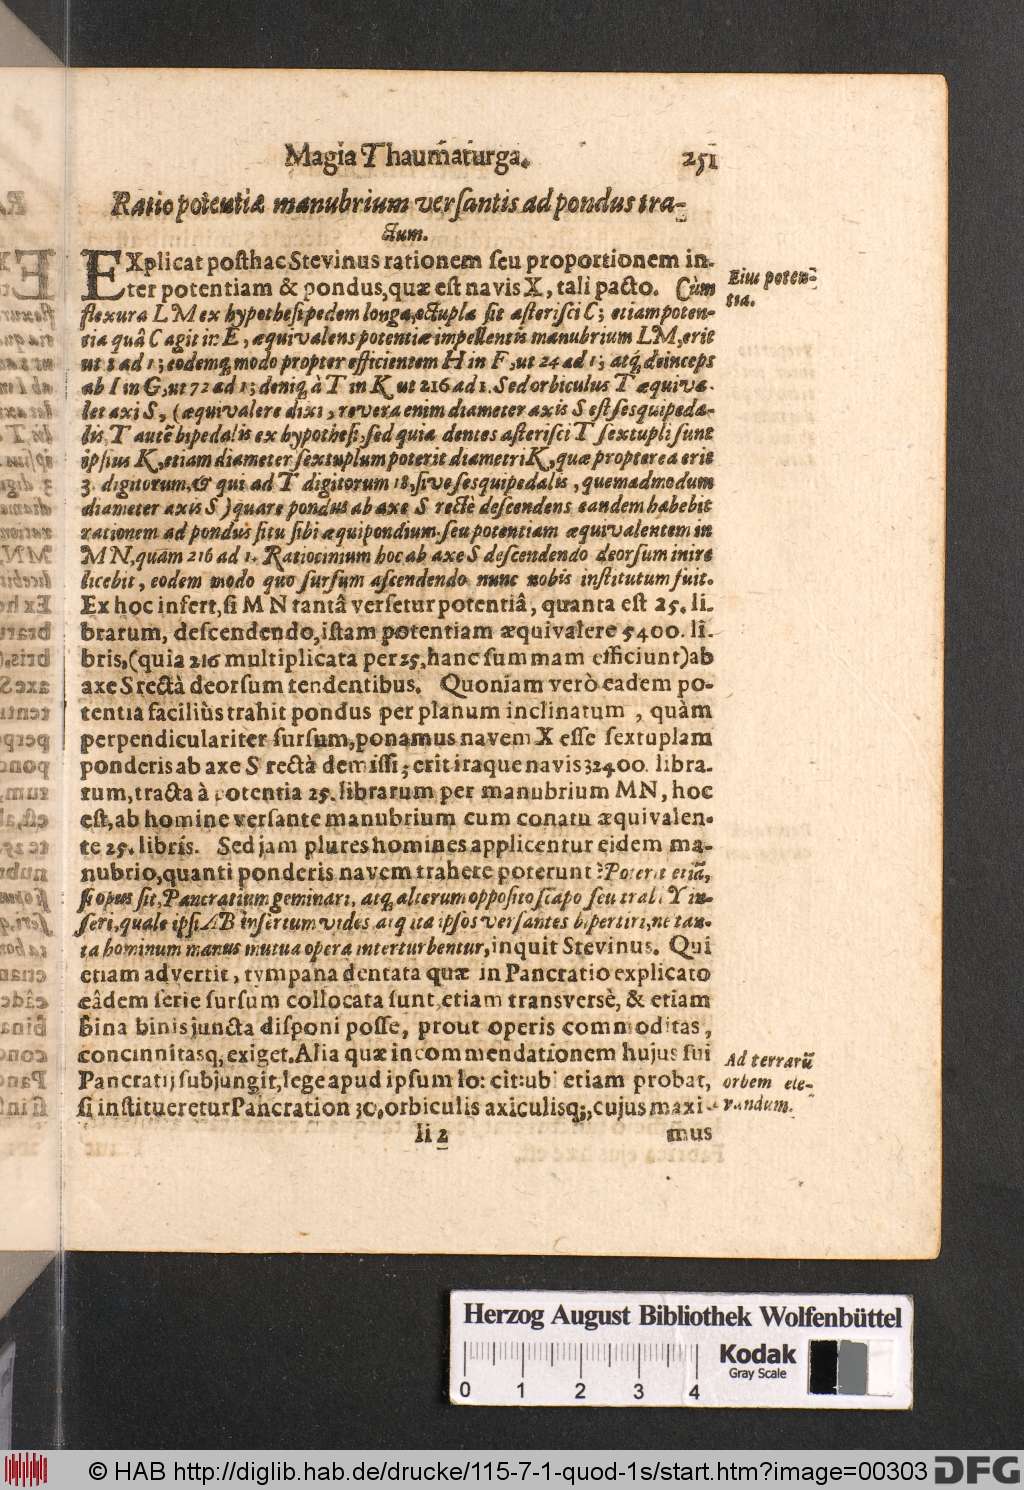 Magia Thaumaturga. 251
Ratio potentiæ manubrium versantis ad pondus tra-
ctum.
EXplicat posthac Stevinus rationem seu proportionem in-
ter potentiam & pondus, quæ est navis X, tali pacto. Cùm
Eius poten-
tia.
flexura LM ex hypothesi pedem longa, octupla sit asterisci C; etiam poten-
tia quâ C agit in E, æquivalens potentiæ impellentis manubrium LM, erit
ut 8 ad 1; eodemq; modo propter efficientem H in F, ut 24 ad 1; atq; deinceps
ab I in G, ut 72 ad 1; deniq; à T in K ut 216 ad 1. Sed orbiculus T æquiva-
let axi S, (æquivalere dixi, revera enim diameter axis S est sesquipeda-
lis, T autẽ bipedalis ex hypothesi, sed quia dentes asterisci T sextupli sunt
ipsius K, etiam diameter sextuplum poterit diametri K, quæ propterea erit
3. digitorum, & qui ad T digitorum 18, sive sesquipedalis, quemadmodum
diameter axis S) quare pondus ab axe S rectè descendens eandem habebit
rationem ad pondus situ sibi æquipondium, seu potentiam æquivalentem in
MN, quàm 216 ad 1. Ratiocinium hoc ab axe S descendendo deorsum inire
licebit, eodem modo quo sursum ascendendo nunc nobis institutum fuit.
Ex hoc infert, si MN tantâ versetur potentiâ, quanta est 25. li-
brarum, descendendo, istam potentiam æquivalere 5400. li-
bris, (quia 216 multiplicata per 25, hanc summam efficiunt) ab
axe S rectà deorsum tendentibus. Quoniam verò eadem po-
tentia faciliùs trahit pondus per planum inclinatum, quàm
perpendiculariter sursum, ponamus navem X esse sextuplam
ponderis ab axe S rectà demissi; erit itaque navis 32400. libra-
rum, tracta à potentia 25. librarum per manubrium MN, hoc
est, ab homine versante manubrium cum conatu æquivalen-
te 25. libris. Sed jam plures homines applicentur eidem ma-
nubrio, quanti ponderis navem trahere poterunt? Poterit etiã,
si opus sit, Pancratium geminari, atq; alterum opposito scapo seu trabi Y in-
seri, quale ipsi AB insertum vides atq ita ipsos versantes bipertiri, ne tan-
ta hominum manus mutua opera interturbentur, inquit Stevinus. Qui
etiam advertit, tympana dentata quæ in Pancratio explicato
eâdem serie sursum collocata sunt, etiam transversè, & etiam
bina binis juncta disponi posse, prout operis commoditas,
concinnitasq, exiget. Alia quæ in commendationem hujus sui
Pancratij subjungit, lege apud ipsum lo: cit: ubi etiam probat,
si institueretur Pancration 30, orbiculis axiculisq;, cujus maxi-
Ad terrarũ
orbem ele-
vandum.
Ii 2 mus
Herzog August Bibliothek Wolfenbüttel
0 1 2 3 4
Kodak
Gray Scale
© HAB http://diglib.hab.de/drucke/115-7-1-quod-1s/start.htm?image=00303 DFG